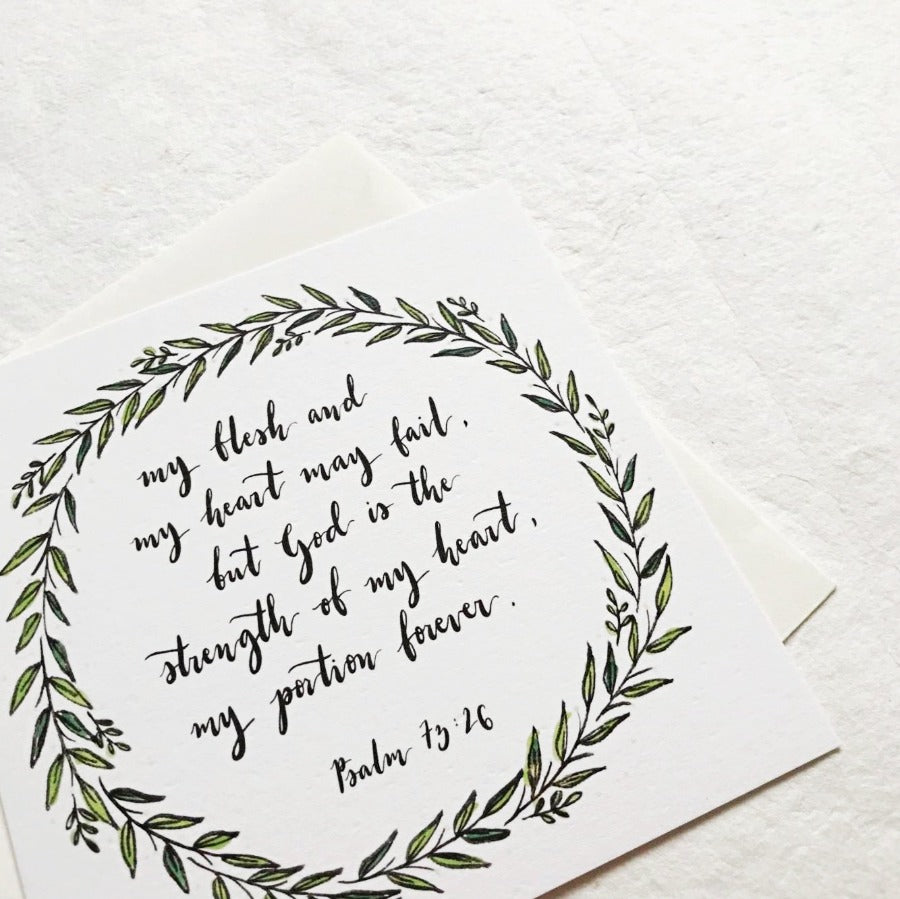 my flesh and
my heart may fail,
but God is the
strength of my heart,
my portion forever.
Psalm 73:26